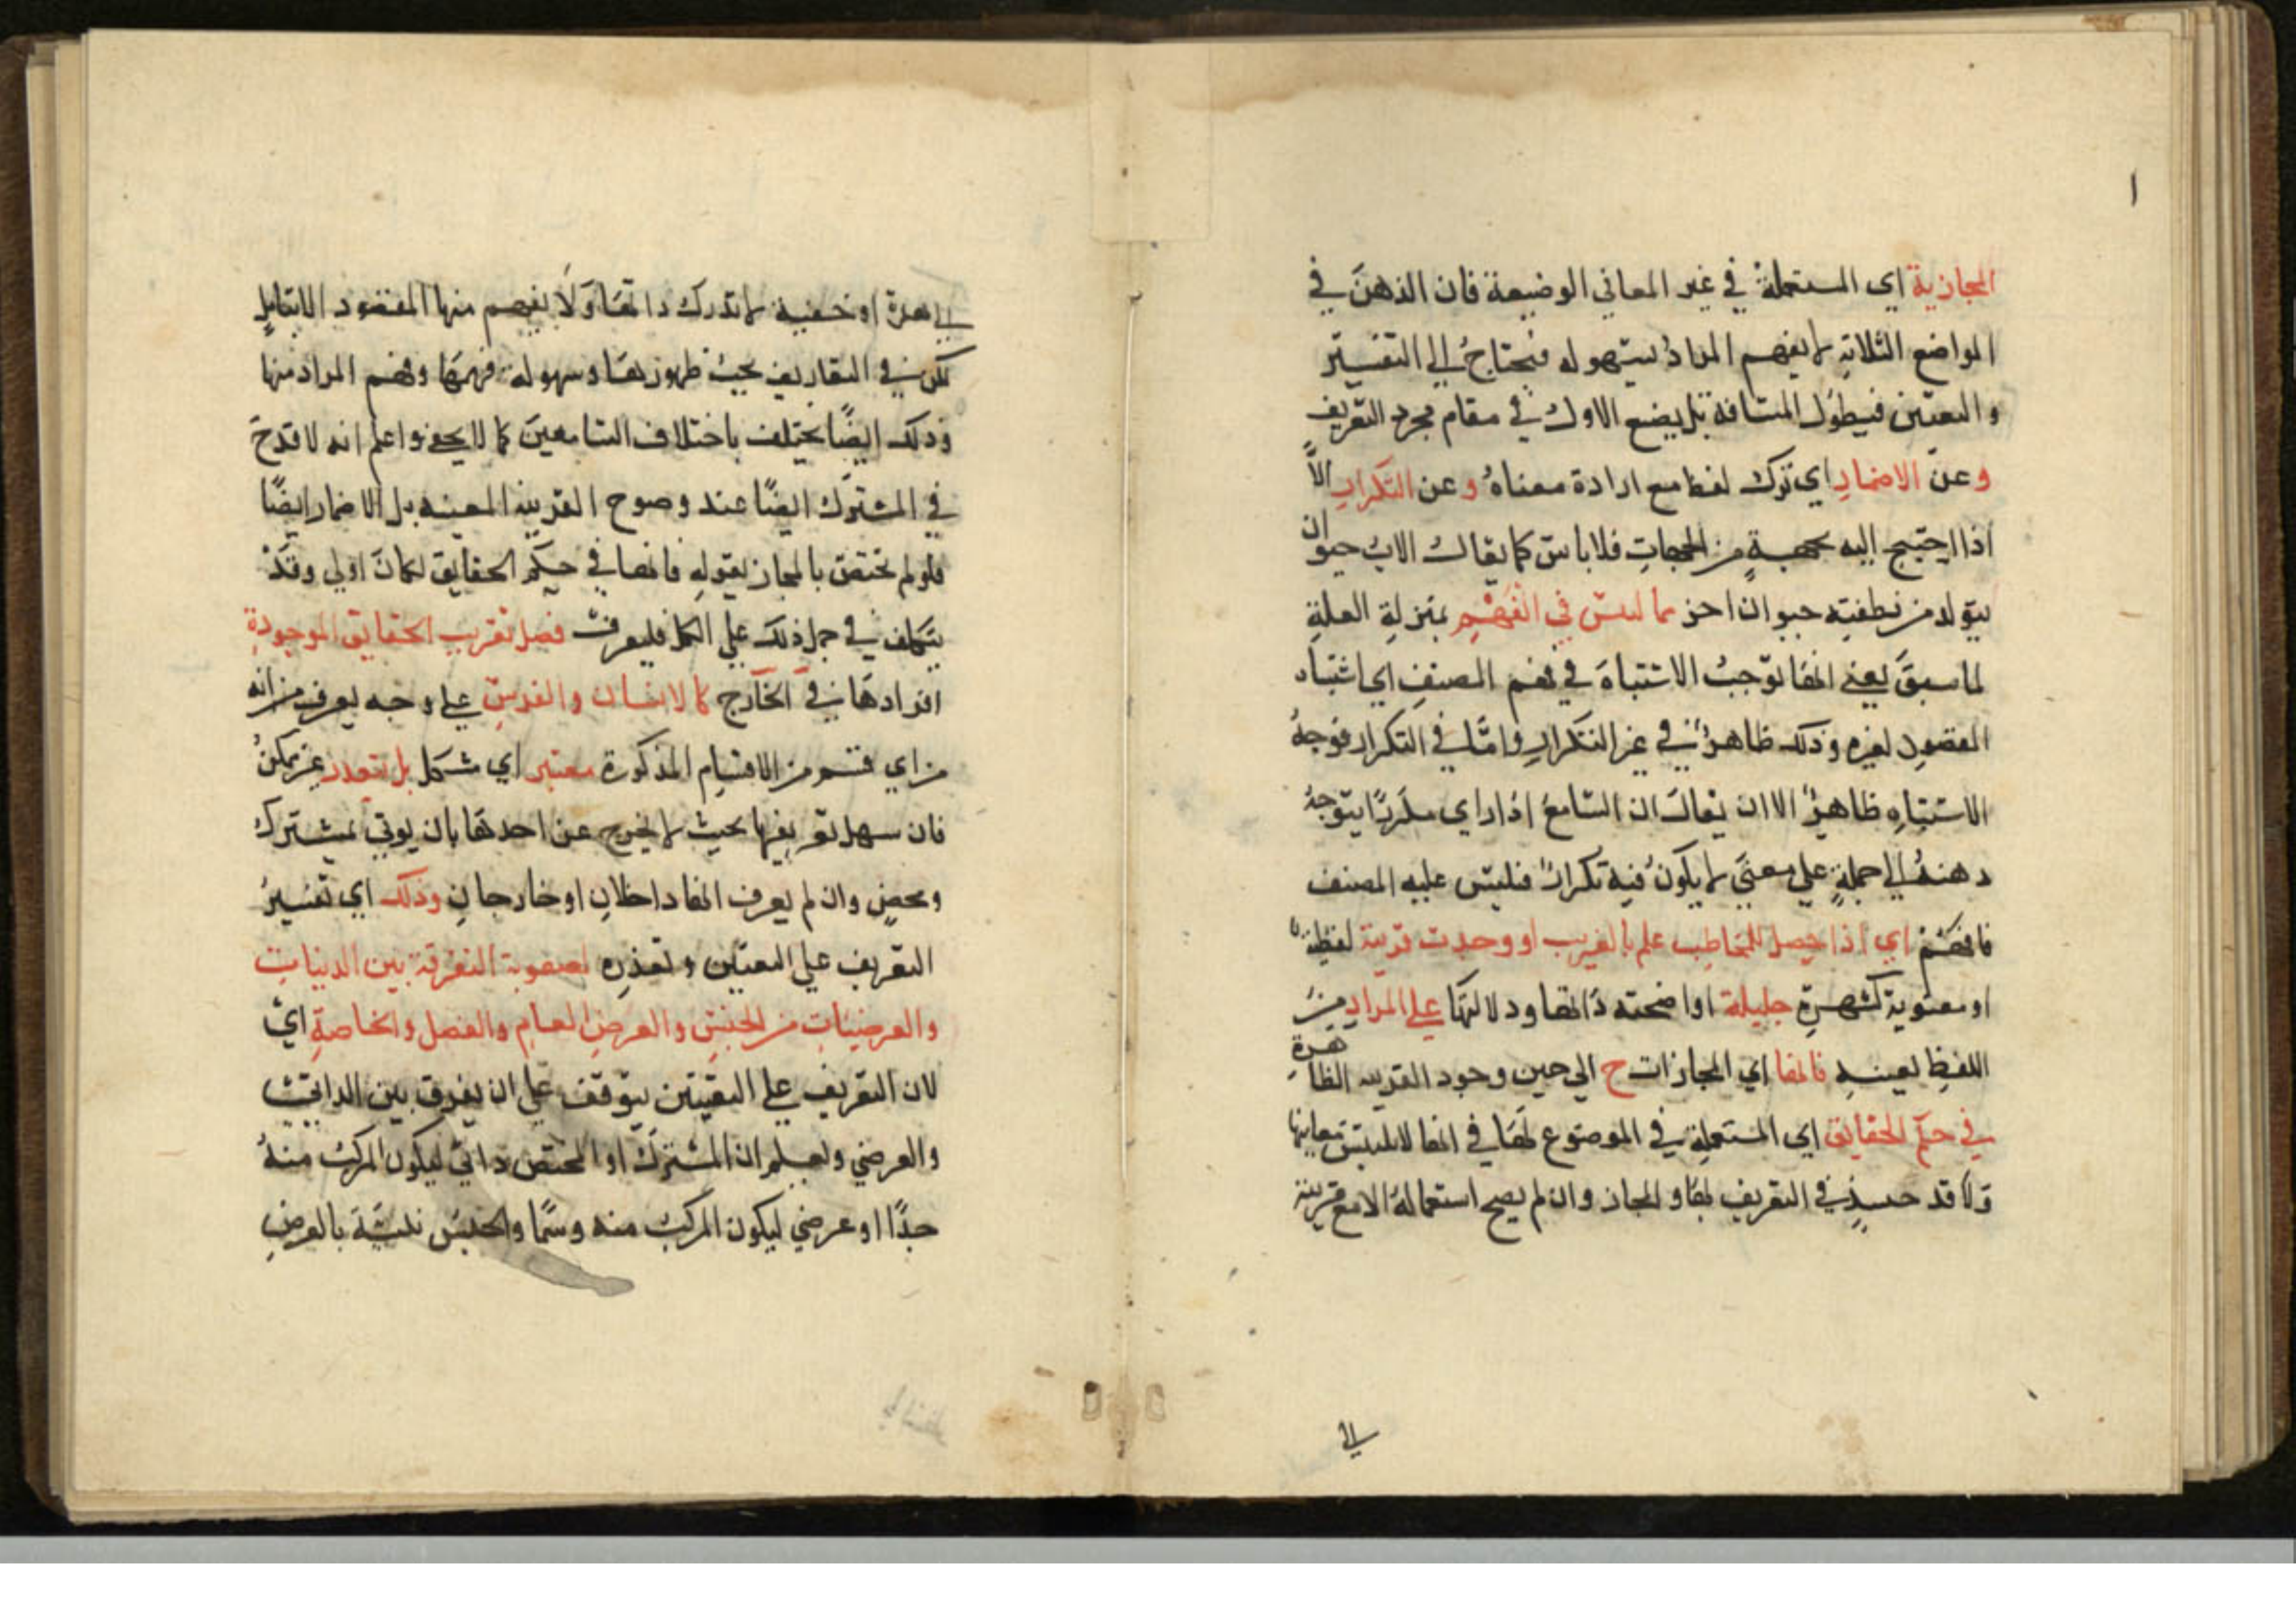 المجازية اي المستعملة في غير المعاني الوضيعة فان الذهن في
المواضع الثلاثة لا يفهم المراد بسهوله فيحتاج الي التفسير
والتعيين فيطول المسافة بل يضيع الاول في مقام مجرد التعريف
وعن الاضمار اي ترك لفظ مع ارادة معناه وعن التكرار الا
اذا احتيج اليه بجهة من الجهات فلا باس كما يقال الاب حيوان
يتولد من نطفته حيوان اخر مما ليس في الفهم بمنزلة العلة
لما سبق يعني انها توجب الاشتباه في فهم المصنف اي اشتباه
المقصود لغيره وذلك ظاهر في غير التكرار واما في التكرار فوجه
الاشتباه ظاهر الا ان يقال ان السامع اذا راي مكررا يتوجه
ذهنه الي حمله علي معني لا يكون فيه تكرار فليس عليه المصنف
فافهم اي اذا حصل للمخاطب علم بالغريب او وجدت قرينة لفظية
او معنوية كشهرة جليلة او اضحته ذاتها ودلالتها علي المراد من
اللفظ لعينه فانها اي المجازات ح الي حين وجود القرينه الظاهرة
في حكم الحقايق اي المستعملة في الموضوع لها في انها لا يلتبس معانيها
ولا قدح حينئذ في التعريف بها والمجاز وان لم يصح استعماله الا مع قرينة
الي
الي هرة او خفية لا تدرك ذاتها ولا يفهم منها المقصود الا بتامل
لكن في التعاريف بحيث ظهورها وسهولة فهمها وفهم المراد منها
وذلك ايضا يختلف باختلاف السامعين كما لا يخفي واعلم انه لا قدح
في المشترك ايضا عند وضوح القرينة المعينه بل الاضمار ايضا
فلو لم تختص بالمجاز بقوله فانها في حكم الحقايق لكان اولي وقد
يتكلف في حمل ذلك علي الكل فليعرف فصل تعريب الحقايق الموجودة
افرادها في الخارج كالانسان والفرس علي وجه يعرف من انه
من اي قسم من الاقسام المذكورة معتبر اي مشكل بل متعذر غير ممكن
فان سهل تعريفها بحيث لا يخرج عن احدها بان يوتي بمشترك
ومحض وان لم يعرف انها داخلان او خارجان وذلك اي تفسير
التعريف علي التعيين وتعذره لصعوبة التفرقة بين الذنيات
والعرضيات من الجنس والعرض العام والفصل والخاصة اي
لان التعريف علي التعيين يتوقف علي ان يفرق بين الذاتي
والعرضي وليعلم ان المشترك او المختص ذاتي ليكون المركب منه
حدا او عرضي ليكون المركب منه وسما والجنس نسبة بالعرض